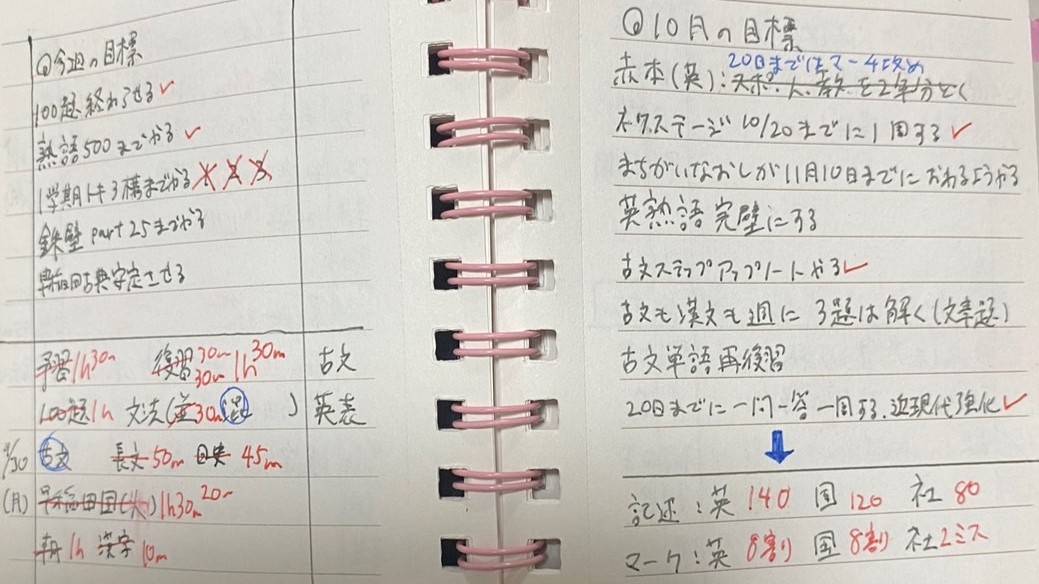 ◎今週の目標
100題終わらせる✓
熟語500までやる✓
1学期1キ3構までやる
鉄壁part25までやる
早稲田古典安定させる
予習1h30m 復習30m 30m 1h30m 古文
100題1h 文法(並30m 混 ) 英表
9/30 古文 長文50m 日史45m
(月) 早稲田国(火)1h30m 20m
朝1h 漢字10m
◎10月の目標
20日まではマーク攻め
赤本(英):スポ、人、教、を2年分とく
ネクステージ10/20までに1周する✓
まちがいなおしが11月10日までにおわるようやる
英熟語完璧にする
古文ステップアップノートやる✓
古文も漢文も週に3題は解く(文章題)
古文単語再復習
20日までに一問一答一周する、近現代強化✓
記述:英140 国120 社80
マーク:英8割 国8割 社2ミス